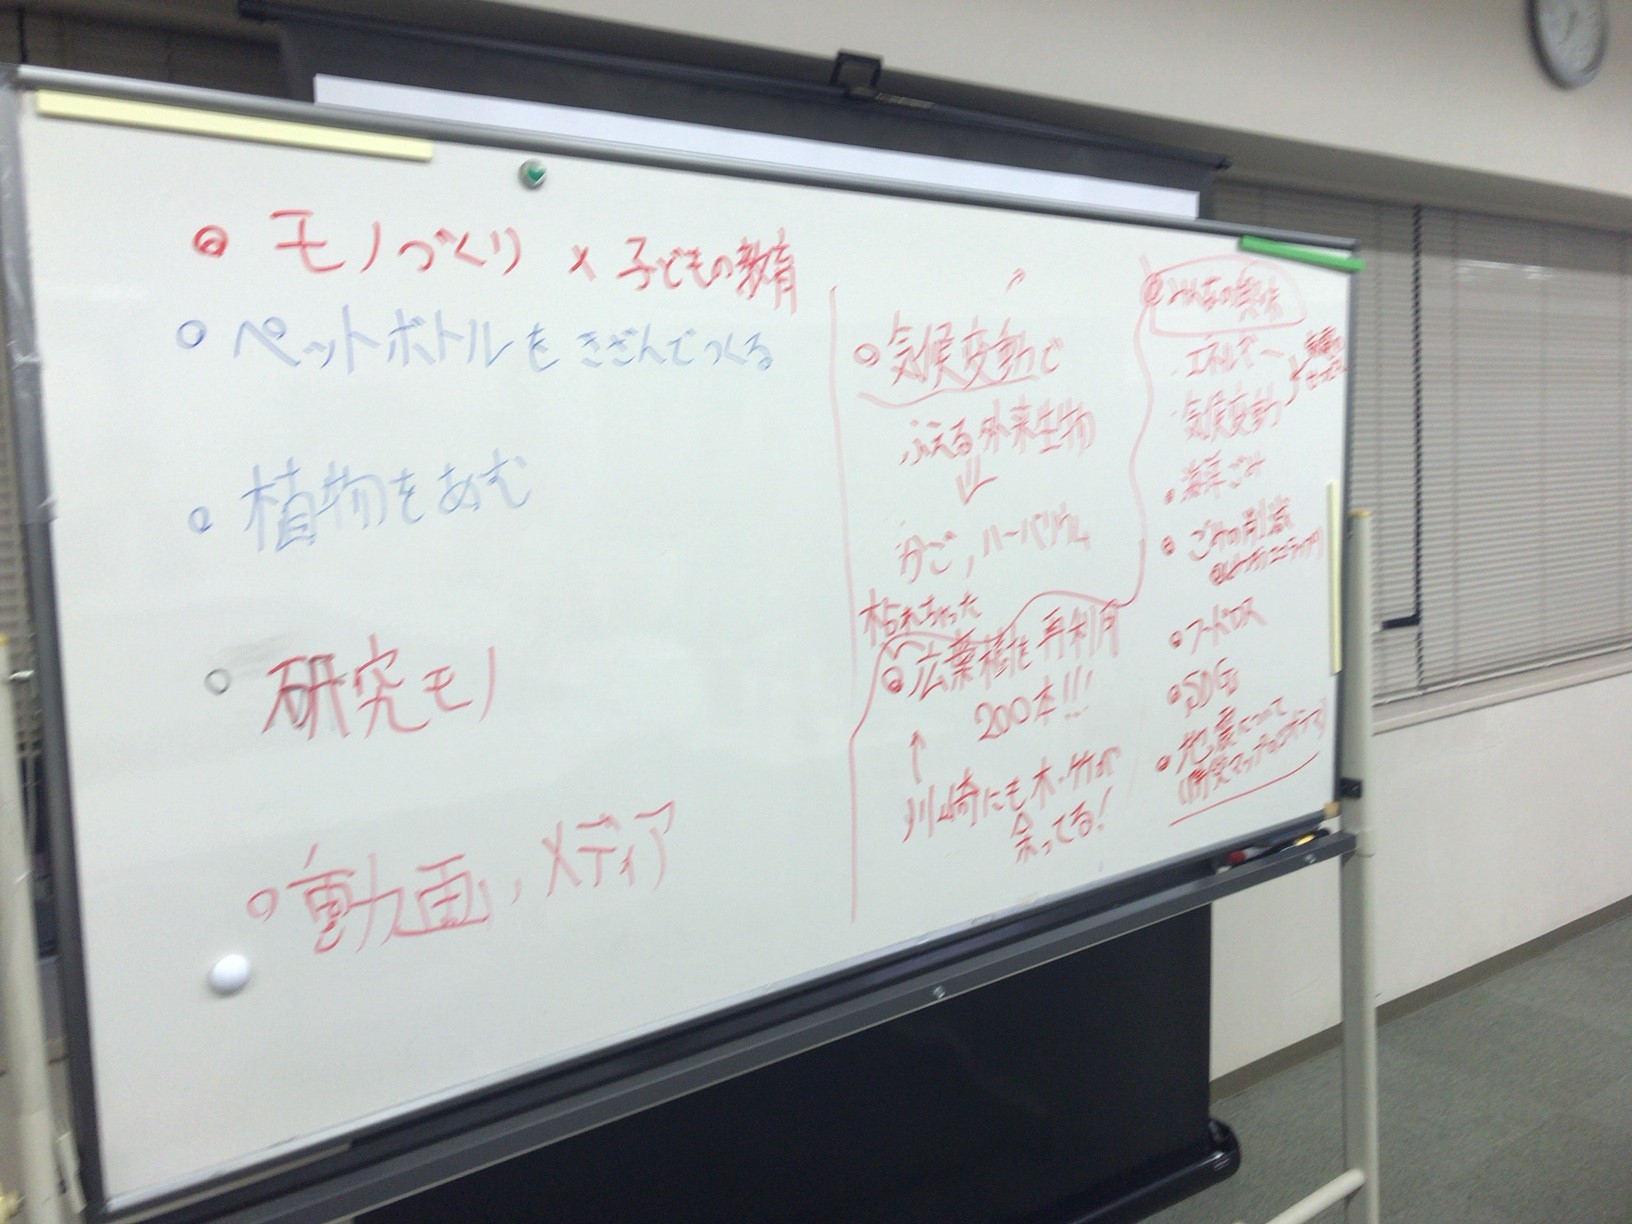 モノづくり × 子どもの教育
ペットボトルをきざんでつくる
植物をあむ
研究モノ
動画, メディア
気候変動で
ふえる外来生物
かご, ハーバリウム
枯れちゃった
広葉樹を再利用
200本!!!
↑
川崎にも木・竹が
余ってる!
みんなの興味
・エネルギー
・気候変動
・海洋ごみ
・ごみの削減
・フードロス
・SDGs
・地震について